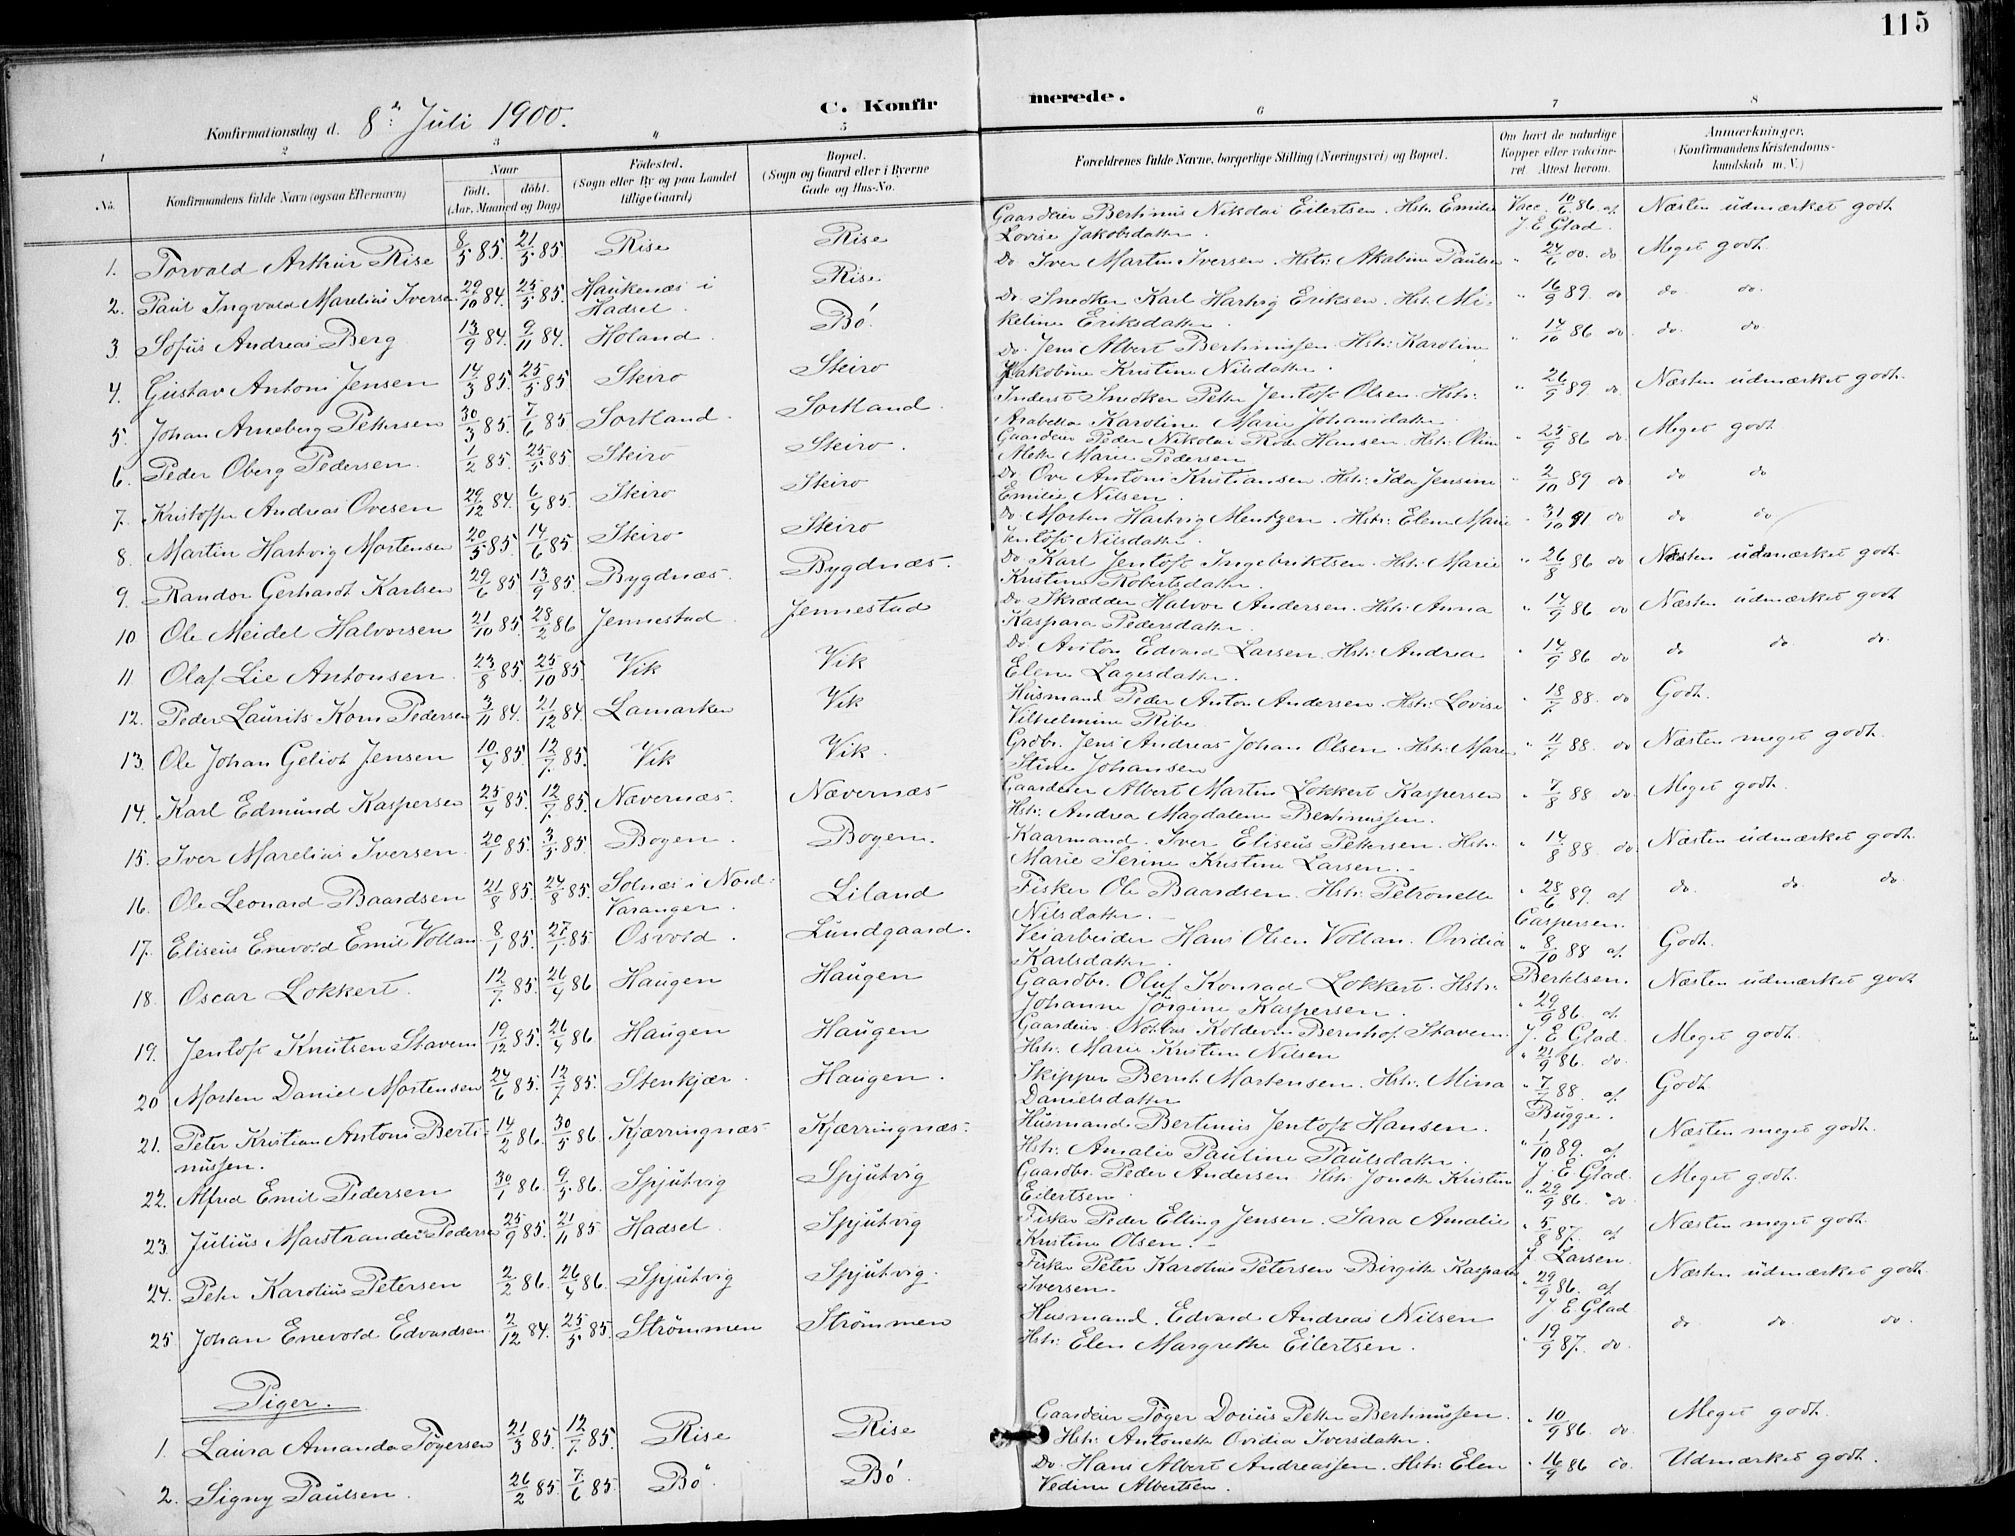 115
C. Konfirmerede.
Konfirmationsdag d. 8de Juli 1900.
1 2 3 4 5 6 7 8
No. Konfirmandens fulde Navn (ogsaa Efternavn) Naar født. døbt. (Aar, Maaned og Dag) Fødested. (Sogn eller By og paa Landet tillige Gaard) Bopæl. (Sogn og Gaard eller i Byerne Gade og Hus-No. Forældrenes fulde Navne, borgerlige Stilling (Næringsvei) og Bopæl. Om havt de naturlige Kopper eller vaccineret Attest herom. Anmærkninger. (Konfirmandens Kristendomskundskab m. V.)
1. Torvald Arthur Rise 8/5 85. 21/5 85. Rise Rise Gaardeier Bertinus Nikolai Eilertsen. Hstr: Emilie Lovise Jakobsdatter. Vacc. 10/6 86 af J. E. Glad. Næsten udmærket godt
2. Paul Ingvald Marelius Iversen 29/10 84. 25/5 85. Haukenæs i Hadsel. Rise Do Iver Martin Iversen. Hstr: Akabine Paulsen " 24/6 00. do Meget godt.
3 Sofus Andreas Berg 13/9 84. 9/11 84. Holand. Bö. Do. Snedker Karl Hartvig Eriksen. Hstr. Mikeline Eriksdatter. " 16/9 89. do do. do.
4. Gustav Antoni Jensen 14/3 85. 25/5 85 Steiro Steiro Do. Jens Albert Bertinussen. Hstr: Karoline Jakobine Kristine Nilsdatter. " 14/10 86 do. do do.
5. Johan Arneberg Pettersen 30/3 85. 7/6 85 Sortland. Sortland. Inderst Snedker Petter Jentoft Olsen. Hstr: Arabella Karoline Marie Johansdatter. " 26/9 89. do. Næsten udmærket godt.
6. Peder Oberg Pedersen. 1/2 85. 25/5 85 Steiro Steiro. Gaardeier Peder Nikolai Hansen. Hstr. Oline Mette Marie Pedersen " 25/9 86 do. Meget godt
7. Kristoffer Andreas Ovesen 29/12 84. 6/4 85 Steiro Steiro Do. Ove Antoni Kristiansen. Hstr: Ida Jensine Emilie Nilsen. " 2/10 89 do do do
8. Martin Hartvig Mortensen 20/5 85. 14/6 85. Steiro Steiro Do. Morten Hartvig Mentzen. Hstr: Elen Marie Jentoft Nilsdatter. " 31/10 91 do do do
9. Randor Gerhardt Karlsen 29/6 85 13/9 85. Bygdnæs. Bygdnæs. Do Karl Jentoft Ingebriktsen. Hstr. Marie Kristine Robertsdatter. " 26/8 86 do Næsten udmærket godt.
10 Ole Meidel Halvorsen 21/10 85. 28/2 86 Jennestad. Jennestad Do Skrædder Halvor Andersen. Hstr: Anna Kaspara Pedersdatter. " 14/9 86 do Næsten udmærket godt
11 Olaf Lie Antonsen. 23/8 85. 25/10 85 Vik Vik Do Anton Edvard Larsen. Hstr: Andrea Elene Lagesdatter. " 14/9 86 do do do. do.
12. Peder Laurits Korn Pedersen 3/11 84. 21/12 84. Lamarken Vik Husmand Peder Anton Andersen. Hstr: Lovise Vilhelmine Ribe " 18/7. 88. do Godt.
13. Ole Johan Geliot Jensen 10/4 85. 12/7. 85. Vik Vik. Grdbr. Jens Andreas Johan Olsen. Hstr: Maren Stine Johansen " 11/7 88. do Næsten meget godt.
14. Karl Edmund Kaspersen 25/4 85. 12/7. 85. Nævernæs. Nævernæs Gaardeier Albert Martin Lökkert Kaspersen Hstr: Andrea Magdalene Bertinussen. " 7/8 88 do. Meget godt.
15. Iver Marelius Iversen. 20/1 85. 3/5 85. Bogen. Bogen. Kaarmand. Iver Eliseus Pettersen. Hstr: Marie Serine Kristine Larsen. " 14/8 88. do. Næsten udmærket godt.
16. Ole Leonard Baardsen 21/8 85. 24/8 85. Solnæs i Nord-Varanger. Liland Fisker Ole Baardsen. Hstr: Petronelle Nilsdatter. " 28/6 89. af Caspersen. do. do. do.
17. Eliseus Enevold Emil Vollan 8/1 85. 27/1 85. Osvold. Lundgaard. Veiarbeider Hans Olsen Vollan. Ovidia Karlsdatter. " 8/10 88 af Bertelsen. Godt.
18. Oscar Lökkert. 12/7. 85. 26/4 86 Haugen Haugen Gaardbr. Oluf Konrad Lökkert. Hstr: Johanne Jörgine Kaspersen. " 29/9 86. af J. E. Glad. Næsten udmærket godt
19. Jentoft Knutsen Stavem 19/12 85. 26/4 86 Haugen Haugen Gaardeier. Koldevin Bernhof. Stavem. Hstr: Marie Kristine Nilsen " 21/9 86. do. Meget godt.
20 Morten Daniel Mortensen 24/6 85. 12/7. 85. Stenkjær. Haugen. Skipper Bernt Martensen. Hstr. Mina Danielsdatter " 7/7 88. af Bugge. Godt
21. Peter Kristian Antoni Bertinussen. 14/2 86. 30/5 86. Kjærringnæs Kjærringnæs. Husmand Bertinius Jentoft Hansen. Hstr: Amalie Pauline Paulsdatter. " 1/10 89. af J. E. Glad. Næsten meget godt.
22. Alfred Emil Pedersen 30/1 86. 9/5 86. Spjutvig Spjutvig Gaardbr. Peder Andersen Hstr: Jonette Kristine Eilertsen. " 29/9 86. do Meget godt.
23. Julius Marstrander Pedersen 25/9 85. 21/11 85 Hadsel. Spjutvig Fisker Peder Elling Jensen. Sara Amalie Kristine Olsen. " 5/8 87. af J. Larsen. Næsten meget godt.
24. Peter Karolius Petersen 2/2 86. 26/4 86. Spjutvig Spjutvig. Fisker Peter Karolius Petersen Birgitte Kaspara Iversen. " 29/9 86. af J. E. Glad Næsten udmærket godt.
25 Johan Enevold Edvardsen. 2/12 84. 25/5 85. Strömmen Strömmen Husmand. Edvard Andreas Nilsen Hstr: Elen Margrethe Eilertsen. " 19/9 87. do. do do. do.
Piger.
1. Laura Amanda Tögersen 21/3 85. 12/7. 85. Rise Rise Gaardeier Töger Dorius Petter Bertinussen. Hstr. Antonette Ovidia Iversdatter. " 10/9 86. do. Meget godt.
2. Signy Paulsen. 26/2 85. 7/6 85. Bö. Bö. Do. Hans Albert Andreassen. Hstr: Elen Vedine Albertsen. " 16/9 86 do. Udmærket godt.